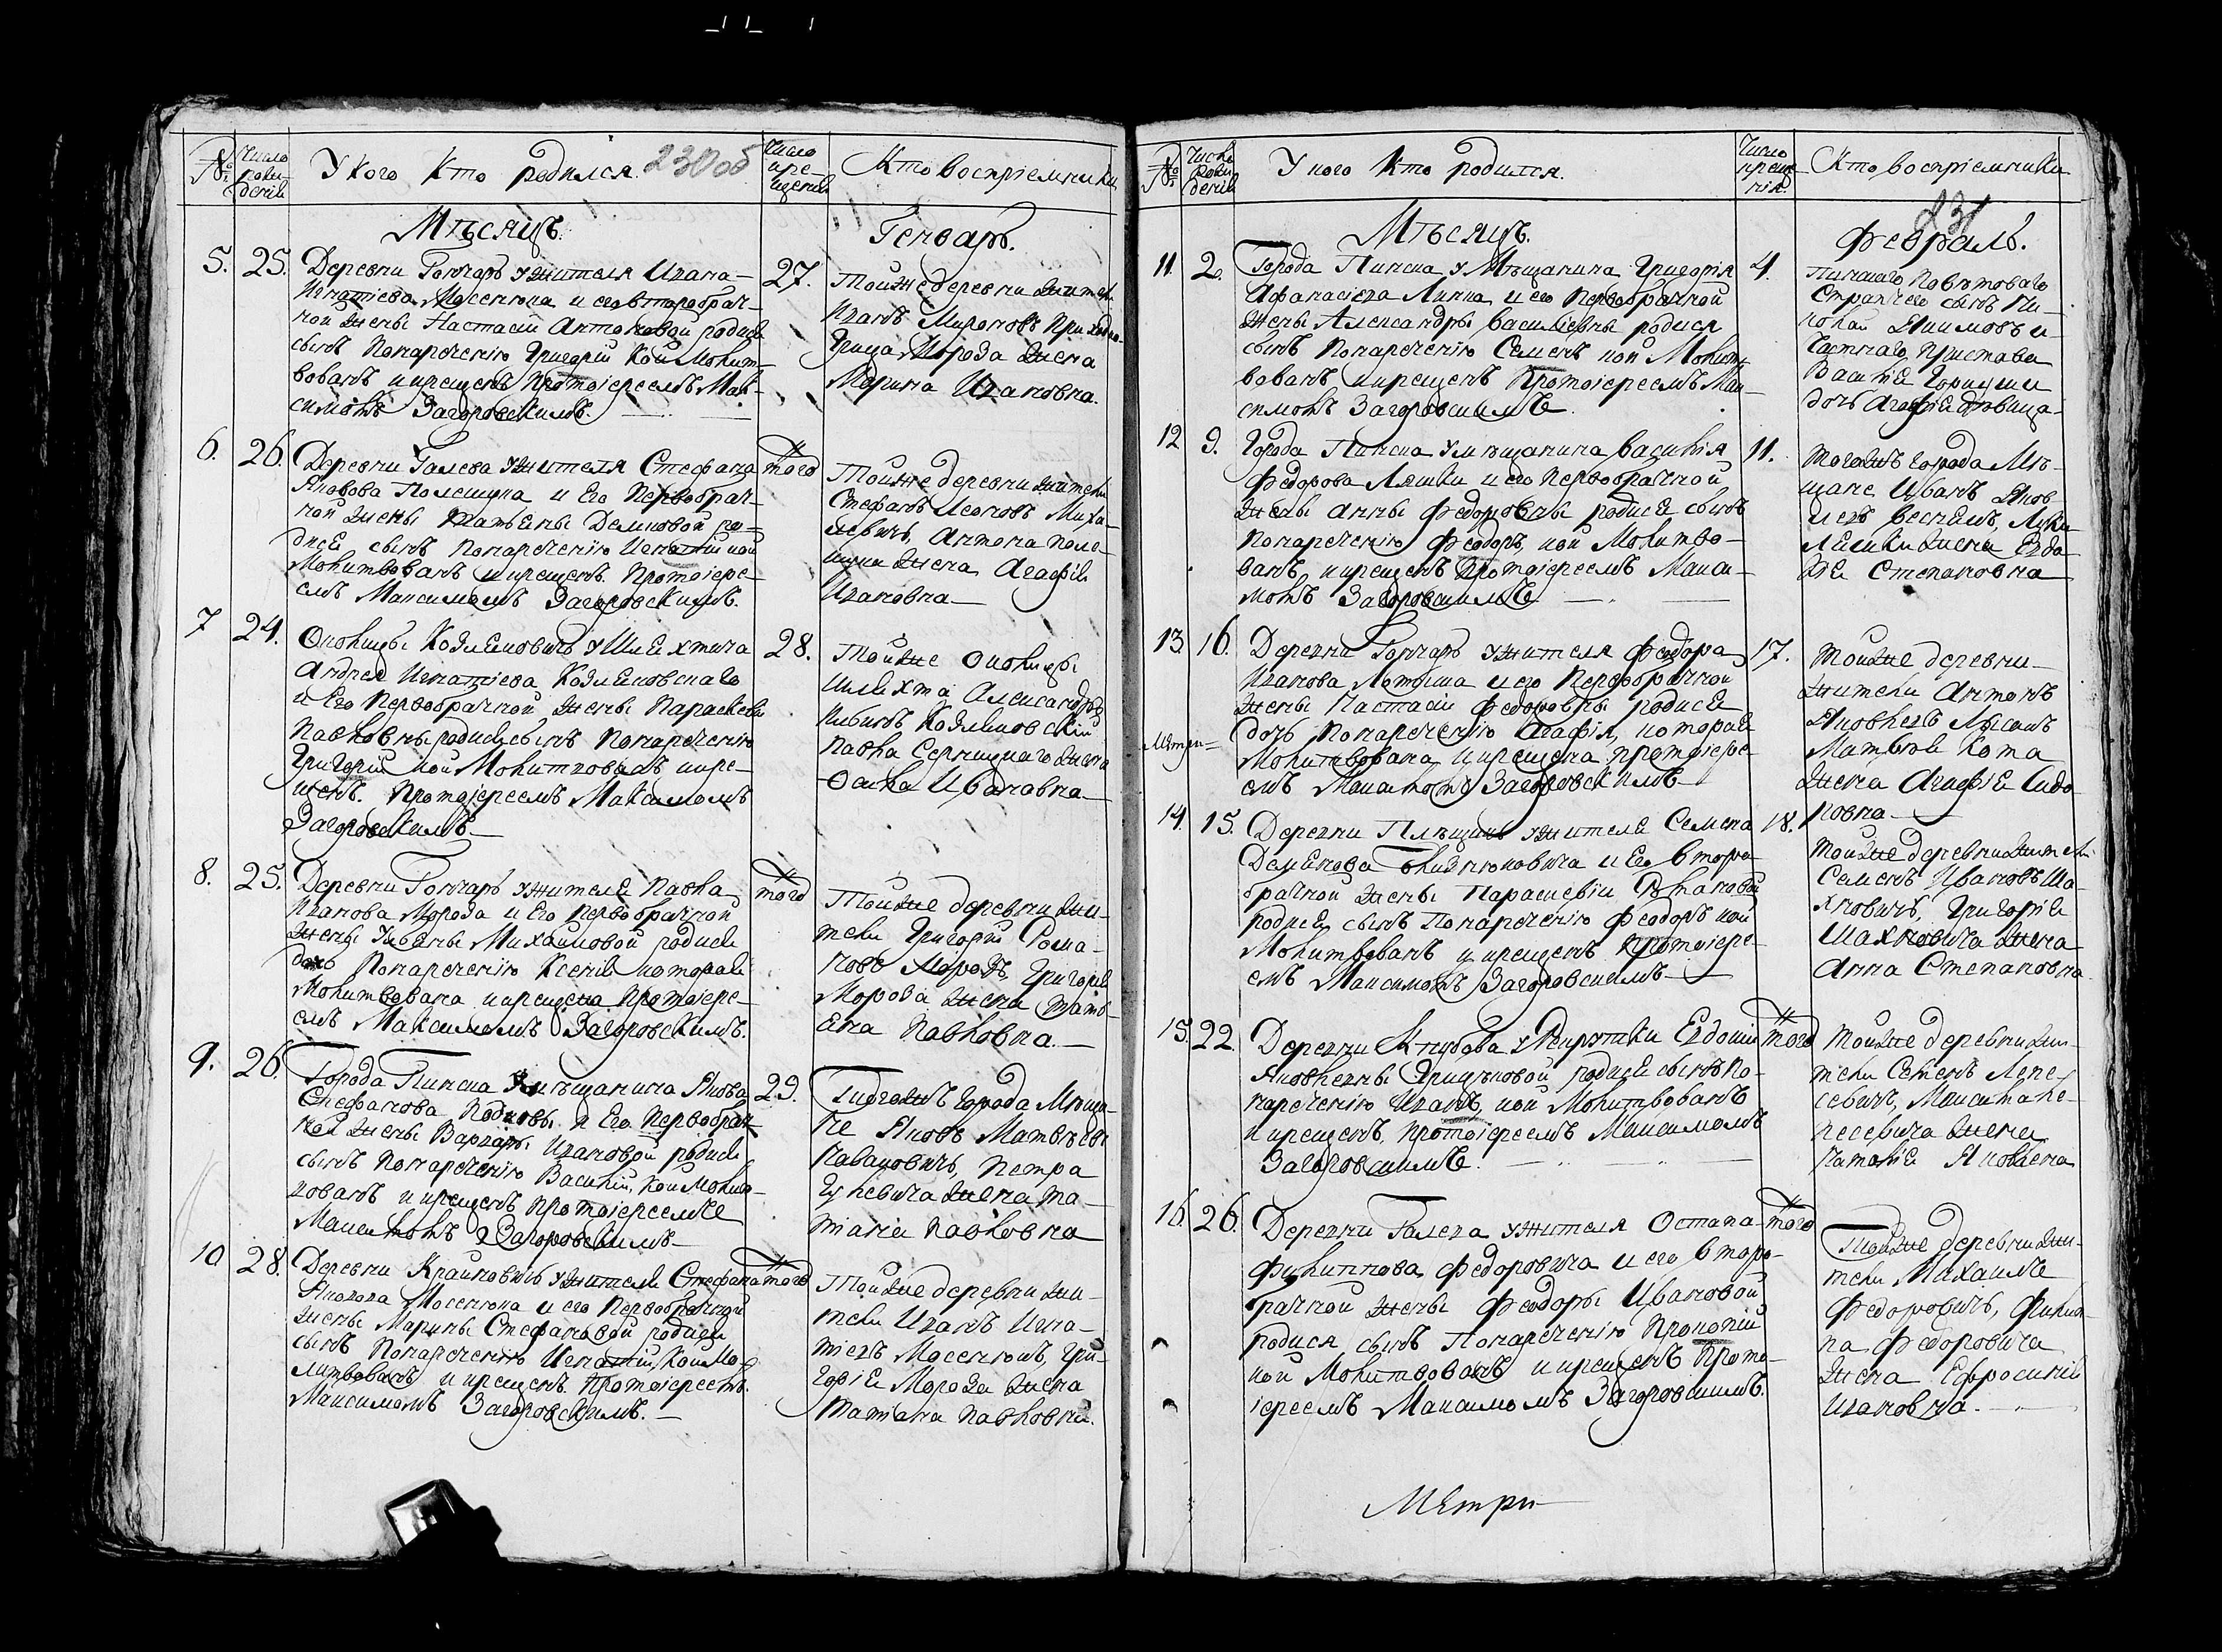 №
Число рождения
У кого кто родился.
230об
Число крещения
Кто восприемники
Мѣсяцъ.
Генварь.
5.
25.
Деревни Гончаръ у жителя Ивана
Игнатіева Мосенюка и его второбрач-
ной жены Настасіи Антоновой родися
сынъ Понареченію Григорій кой Молит-
вованъ и крещенъ Протоіереемъ Мак-
симомъ Загоровскимъ.
27.
Тойже деревни жители
Иванъ Мироновъ
Грица Мороза жена
Марина Ивановна.
6.
26.
Деревни Галева у жителя Стефана
Яковова Полещука и Его Первобрач-
ной жены Татьяны Демковой ро-
дися сынъ Понареченію Игнатій кой
Молитвованъ и крещенъ Протоіере-
емъ Максимомъ Загоровскимъ.
того
Тойже деревни жители
Стефанъ Леоновъ Миха-
левичъ, Антона Поле-
щука жена Агафія
Ивановна
7
24.
Околицы Козляковичъ у Шляхтича
Андрея Игнатіева Козляковскаго
и Его Первобрачной жены Параскевы
Павловны родися сынъ Понареченію
Григорій кой Молитвованъ и кре-
щенъ Протоіереемъ Максимомъ
Загоровскимъ
28.
Тойже Околицы
Шляхта Александръ
Козляковскій
Павла жена
Ивановна
8.
25.
Деревни Гончаръ у жителя Павла
Иванова Мороза и Его Первобрачной
жены Ульяны Михайловой родися
дочь Понареченію Ксенія которая
Молитвована и крещена Протоіере-
емъ Максимомъ Загоровскимъ.
того
Тойже деревни жи-
тели Григорій Рома-
новъ Морозъ, Григорія
Мороза жена Тать-
яна Павловна.
9.
26.
Города Пинска У мѣщанина Якова
Стефанова и Его Первобрач-
ной жены Варвары Ивановой родися
сынъ Понареченію Василій, кой Молит-
вованъ и крещенъ Протоіереемъ
Максимомъ Загоровскимъ
29.
города Мѣща-
не Яковъ Матвѣевъ
Петра
жена Та-
тіана Павловна
10
28.
Деревни Крайновичъ у жителя Стефана
Яковова Мосенюка и его Первобрачной
жены Марины Стефановой родися
сынъ Понареченію Игнатій, кой Мо-
литвованъ и крещенъ Протоіереемъ
Максимомъ Загоровскимъ.
того
Тойже деревни жи-
тели Иванъ Игна-
тіевъ Мосенюкъ, Гри-
горія Мороза жена
Татіана Павловна.
№
Число рождения
У кого кто родился.
Число крещенія.
Кто восприемники
231
Мѣсяцъ.
Февраль.
11.
2.
Города Пинска у Мѣщанина Григорія
Афанасіева Линка и его Первобрачной
жены Александры Василіевны родися
сынъ Понареченію Семенъ кой Молит-
вованъ и крещенъ Протоіереемъ Мак-
симомъ Загоровскимъ.
4.
Пинскаго Повѣтоваго
Стряпчего сынъ Ни-
колай Якимовъ и
Частнаго Пристава
Василія
дочь Агафія дѣвица
12
9.
Города Пинска у мѣщанина Василія
Федорова Ляшки и его Первобрачной
жены Анны Федоровны родися сынъ
Понареченію Феодоръ, кой Молитво-
ванъ и крещенъ Протоіереемъ Макси-
момъ Загоровскимъ
11.
тогожъ города Мѣ-
щане Иванъ Яков-
левъ Луки
Ляшки жена Евдо-
кія Степановна
13
16.
Деревни Гончаръ у жителя Федора
Иванова Лотыша и его Первобрачной
жены Настасіи Федоровны родися
дочь Понареченію Агафія, которая
Молитвована и крещена протоіере-
емъ Максимомъ Загоровскимъ
17.
Тойже деревни
жители Антонъ
Яковлевъ
Матвѣя Кота
жена Агафія Сидо-
ровна
Метри=
14.
15.
Деревни Плещицъ у жителя Семена
Демянова и Его Второ-
брачной жены Параскевіи Романовой
родися сынъ Понареченію Феодоръ кой
Молитвованъ и крещенъ Протоіере-
емъ Максимомъ Загоровскимъ
18.
Тойже деревни жители
Семенъ Ивановъ Ша-
хновичъ, Григорія
Шахновича жена
Анна Степановна
15.
22.
Деревни Кнубова у Рекрутки Евдокіи
Яковлевны Грицковой родися сынъ По-
нареченію Иванъ, кой Молитвованъ
и крещенъ, Протоіереемъ Максимомъ
Загоровскимъ.
того
Тойже деревни жи-
тели Семенъ Лепе-
севичъ, Максима Ле-
песевича жена
Наталія Яковлевна
16.
26.
Деревни Галева у жителя Остапа
Филиппова Федоровича и его Второ-
брачной жены Феодоры Ивановой
родися сынъ Понареченію Прокопій
кой Молитвованъ и крещенъ Прото-
іереемъ Максимомъ Загоровскимъ.
того
Тойже деревни жи-
тели Михаилъ
Федоровичъ, Филип-
па Федоровича
жена Ефросинія
Ивановна.
Метри